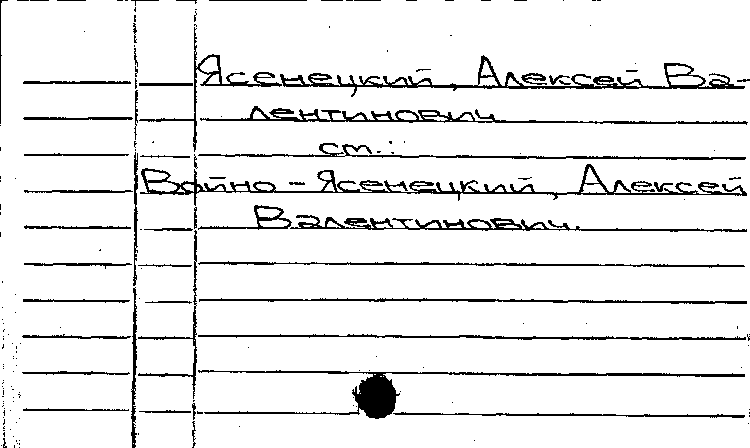 Ясенецкий, Алексей Ва-
лентинович
см.:
Войно-Ясенецкий, Алексей
Валентинович.